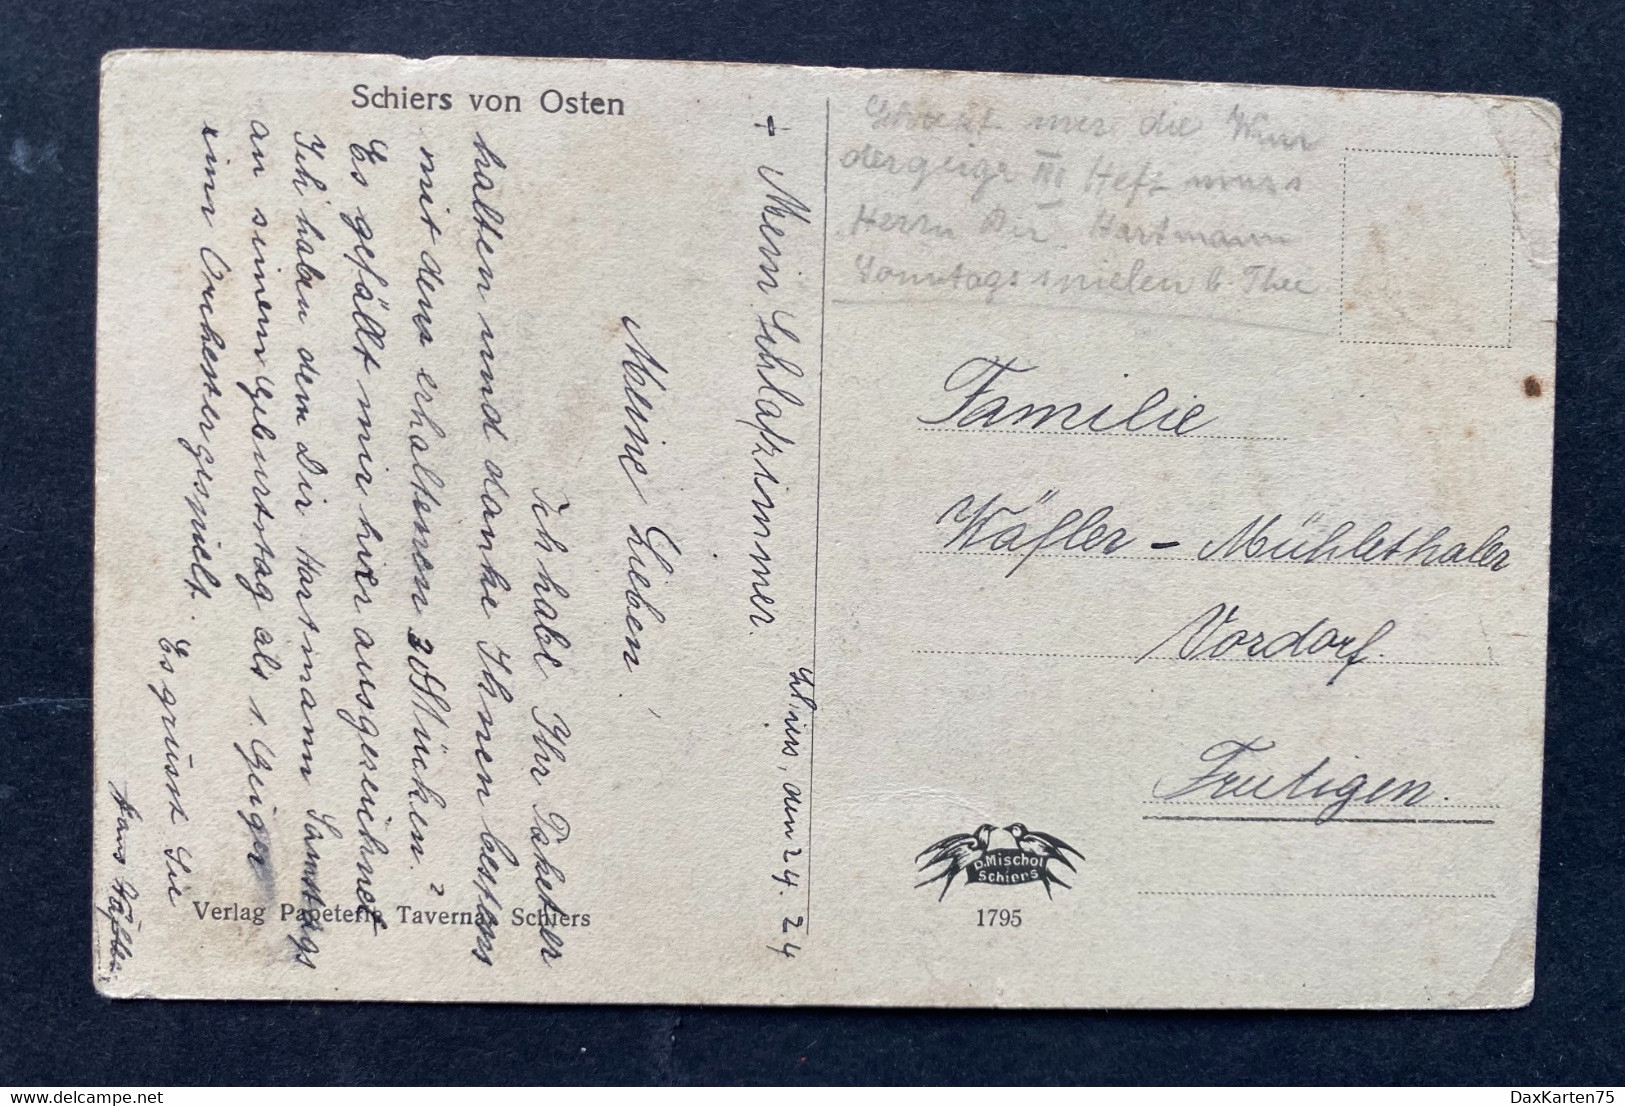 Schiers von Osten
+ Mein Schlafzimmer.
Schiers, den 24. 24
Meine Lieben!
Ich habe Ihr Paket er
halten und danke Ihnen bestens
mit dem erhaltenen
Es gefällt mir hier ausgezeichnet
Ich haben dem Dir Hartmann Samstags
an seinem Geburtstag als 1. Geiger
im Orchester gespielt.
Es grüsst Sie
Hans Wäfler.
Verlag Papeterie Taverna, Schiers
Schickt mir die Wun
dergeige III Heft muss
Herrn Dir. Hartmann
Sonntags spielen b. Thee
Familie
Wäfler - Mühlethaler
Vordorf
Frutigen.
D. Mischol
Schiers
1795
DaxKarten75